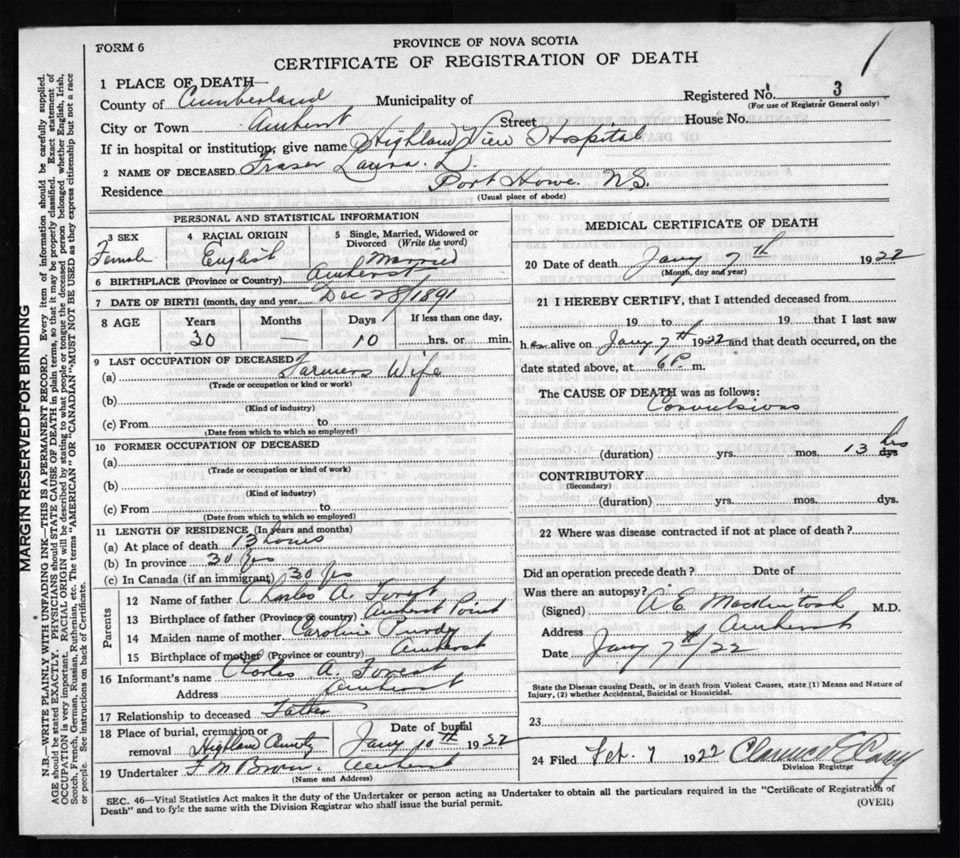 FORM 6
PROVINCE OF NOVA SCOTIA
CERTIFICATE OF REGISTRATION OF DEATH
1 PLACE OF DEATH—
County of Cumberland Municipality of Registered No. 3
(For use of Registrar General only)
City or Town Amherst Street House No.
If in hospital or institution, give name Highland View Hospital
2 NAME OF DECEASED Fraser Laura. D.
Residence Port Howe. N.S.
(Usual place of abode)
PERSONAL AND STATISTICAL INFORMATION
3 SEX Female
4 RACIAL ORIGIN English
5 Single, Married, Widowed or Divorced (Write the word) Married
6 BIRTHPLACE (Province or Country) Amherst
7 DATE OF BIRTH (month, day and year) Dec 28/1891
8 AGE Years Months Days If less than one day,
30 — 10 hrs. or min.
9 LAST OCCUPATION OF DECEASED
(a) Farmers Wife
(Trade or occupation or kind or work)
(b)
(Kind of industry)
(c) From to
(Date from which to which so employed)
10 FORMER OCCUPATION OF DECEASED
(a)
(Trade or occupation or kind or work)
(b)
(Kind of industry)
(c) From to
(Date from which to which so employed)
11 LENGTH OF RESIDENCE (In years and months)
(a) At place of death 13 hours
(b) In province 30 yrs
(c) In Canada (if an immigrant) 30 yrs
Parents
12 Name of father Charles A. Forest
13 Birthplace of father (Province or country) Amherst Point
14 Maiden name of mother Caroline Purdy
15 Birthplace of mother (Province or country) Amherst
16 Informant's name Charles A. Forest
Address Amherst
17 Relationship to deceased Father
18 Place of burial, cremation or Date of burial
removal Highland Jany 10th 1922
19 Undertaker F. M. Brown. Amherst
(Name and Address)
MEDICAL CERTIFICATE OF DEATH
20 Date of death Jany 7th 1922
(Month, day and year)
21 I HEREBY CERTIFY, that I attended deceased from
19 to 19 that I last saw
her alive on Jany 7th 1922 and that death occurred, on the
date stated above, at 6 P. m.
The CAUSE OF DEATH was as follows:
Convulsions
(duration) yrs. mos. 13 hrs dys
CONTRIBUTORY
(Secondary)
(duration) yrs. mos. dys.
22 Where was disease contracted if not at place of death?
Did an operation precede death? Date of
Was there an autopsy?
(Signed) A. E. Mackintosh M.D.
Address Amherst
Date Jany 7th/22
State the Disease causing Death, or in death from Violent Causes, state (1) Means and Nature of
Injury, (2) whether Accidental, Suicidal or Homicidal.
23
24 Filed Feb. 7 1922 Clarence
Division Registrar
SEC. 46—Vital Statistics Act makes it the duty of the Undertaker or person acting as Undertaker to obtain all the particulars required in the "Certificate of Registration of
Death" and to fyle the same with the Division Registrar who shall issue the burial permit.
(OVER)
MARGIN RESERVED FOR BINDING
N.B.—WRITE PLAINLY WITH UNFADING INK—THIS IS A PERMANENT RECORD. Every item of information should be carefully supplied.
AGE should be stated EXACTLY. PHYSICIANS should STATE CAUSE OF DEATH in plain terms, so that it may be properly classified. Exact statement of
OCCUPATION is very important. RACIAL ORIGIN will be described by stating to what people or tongue the deceased person belonged whether English, Irish,
Scotch, French, German, Russian, Ruthenian, etc. The terms "AMERICAN" OR "CANADIAN" MUST NOT BE USED as they express citizenship but not a race
or people. See instructions on back of Certificate.